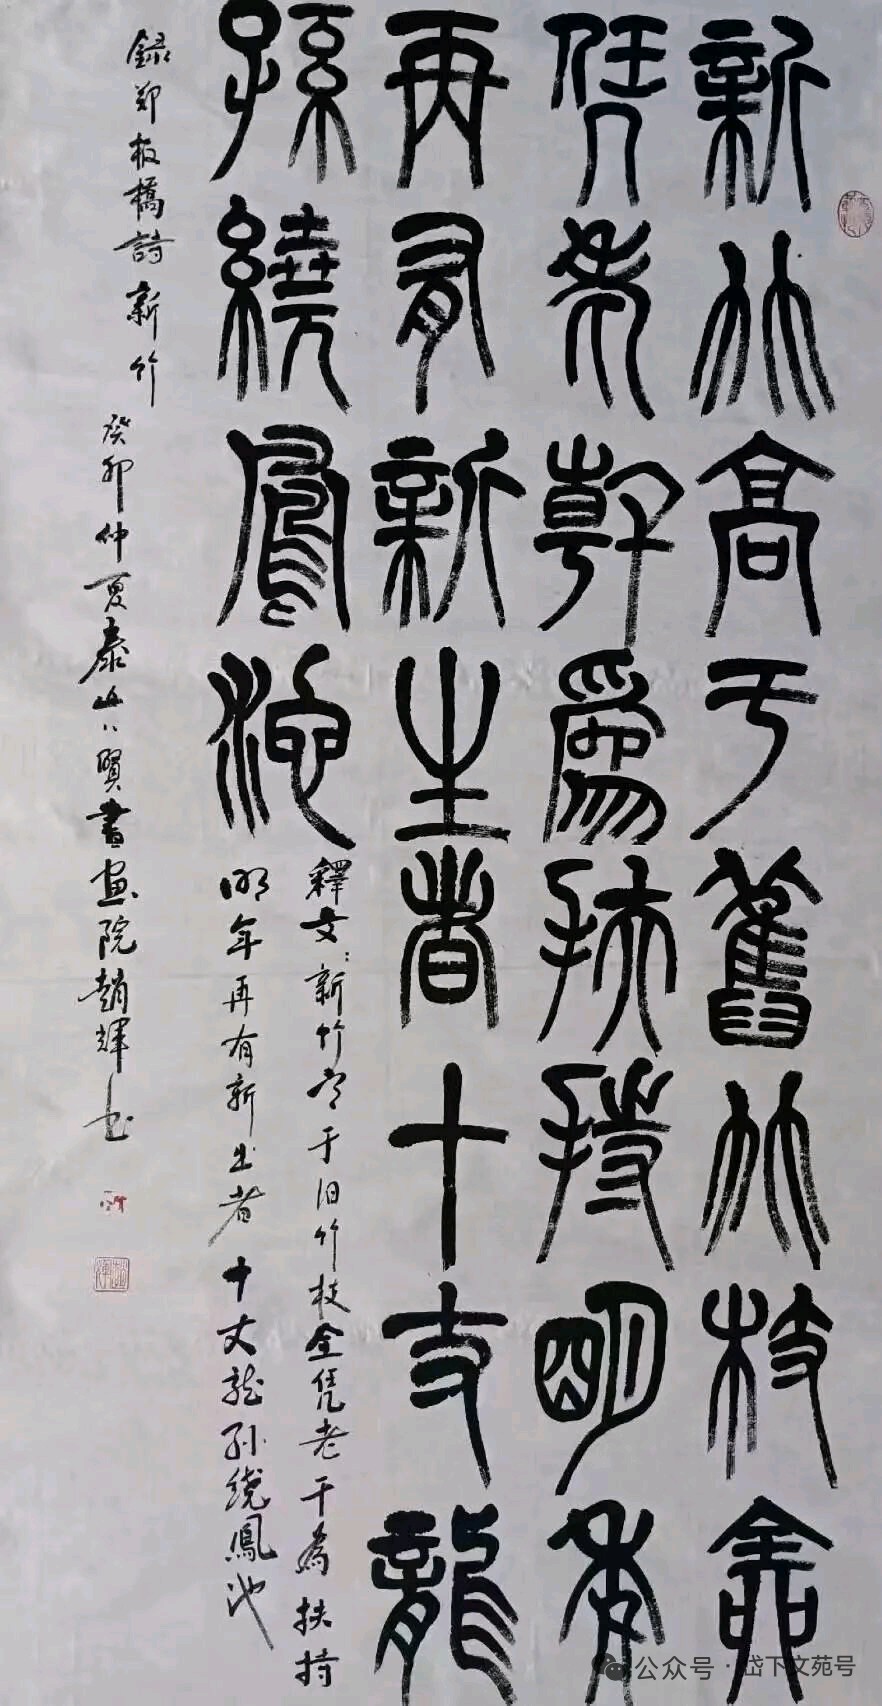 新竹高于舊竹枝全
凭老幹爲扶持明年
再有新生者十丈龍
孫繞鳳池
釋文：新竹高于旧竹枝全凭老干為扶持
明年再有新生者十丈龙孙绕鳳池
録郑板橋詩新竹
癸卯仲夏泰山八賢書画院趙輝书
公众号·岱下文苑号